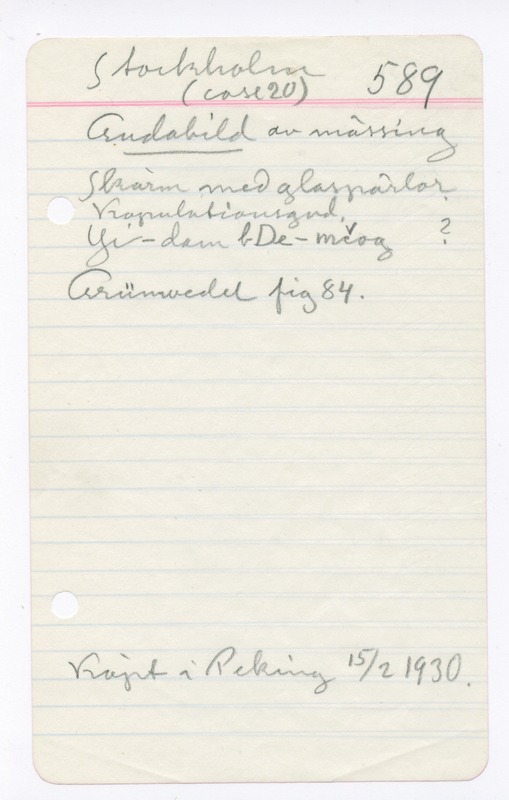 Stockholm 589
(case 20)
Gudabild av mässing
Skärm med glaspärlor
Kopulationsgud.
Yi-dam bDe-mčog ?
Grünwedel fig 84.
Köpt i Peking 15/2 1930.